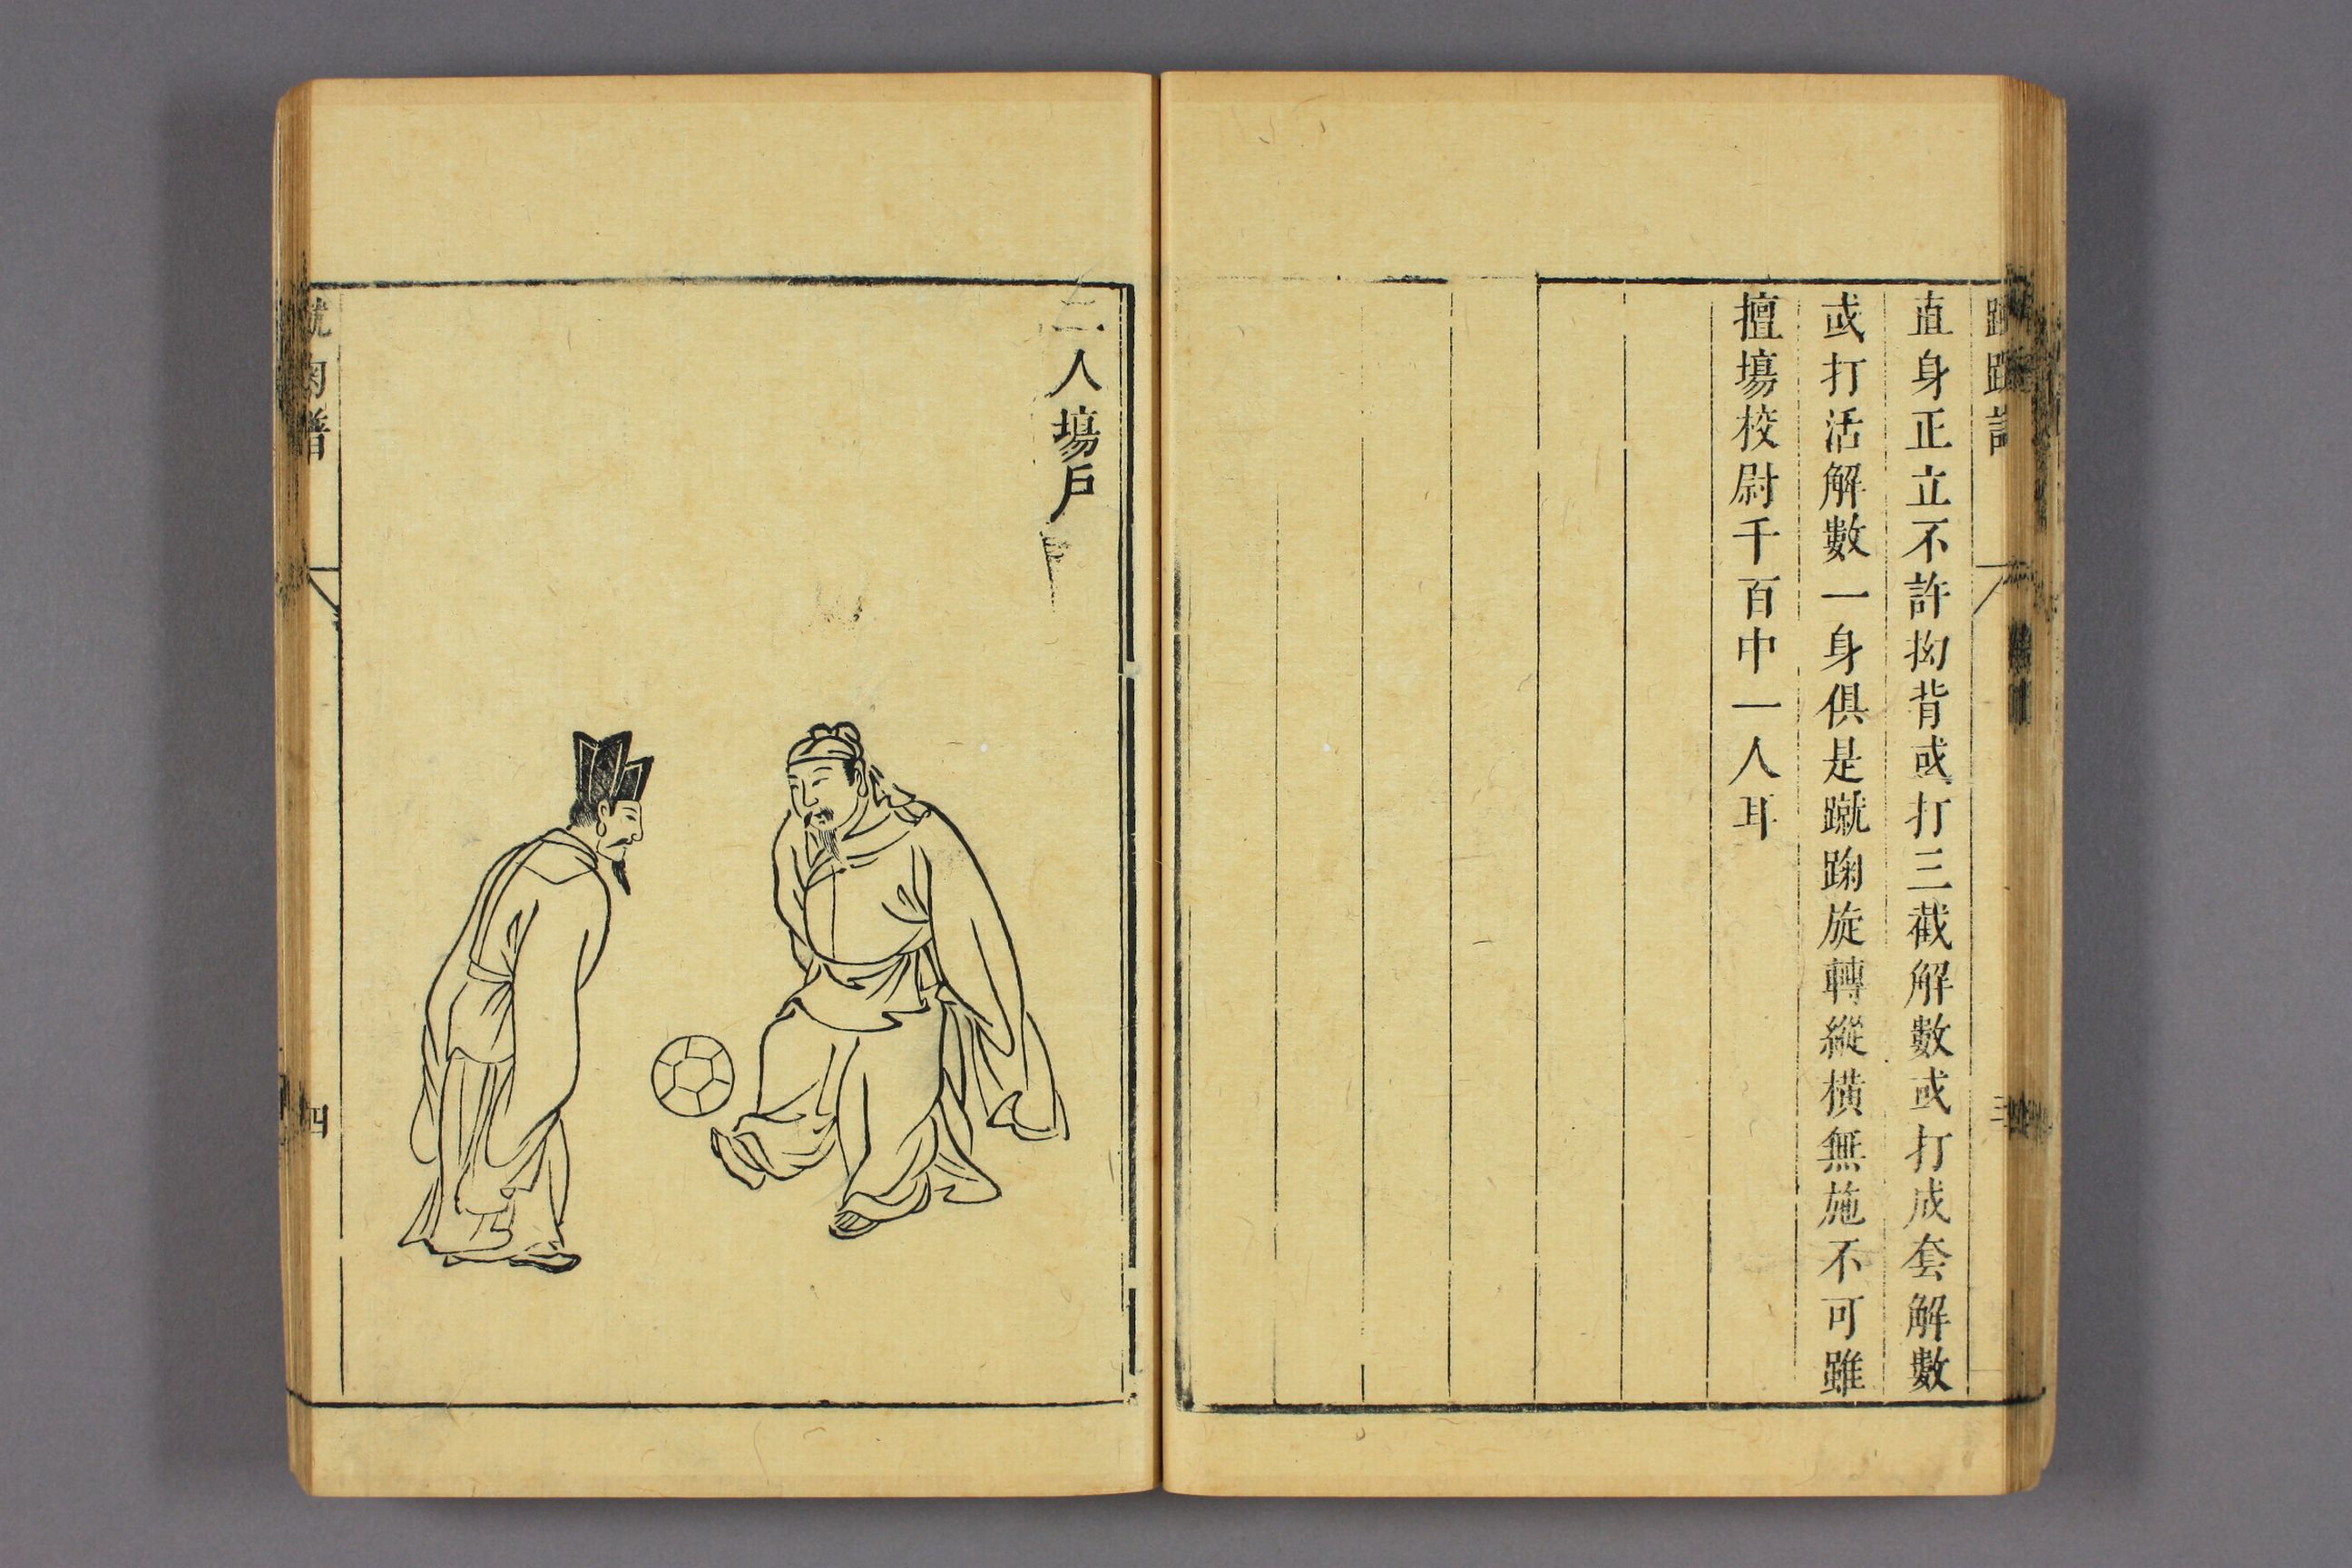 直身正立不許拗背或打三截解數或打成套解數
或打活解數一身俱是蹴踘旋轉縱橫無施不可雖
擅塲校尉千百中一人耳
二人塲戶
四